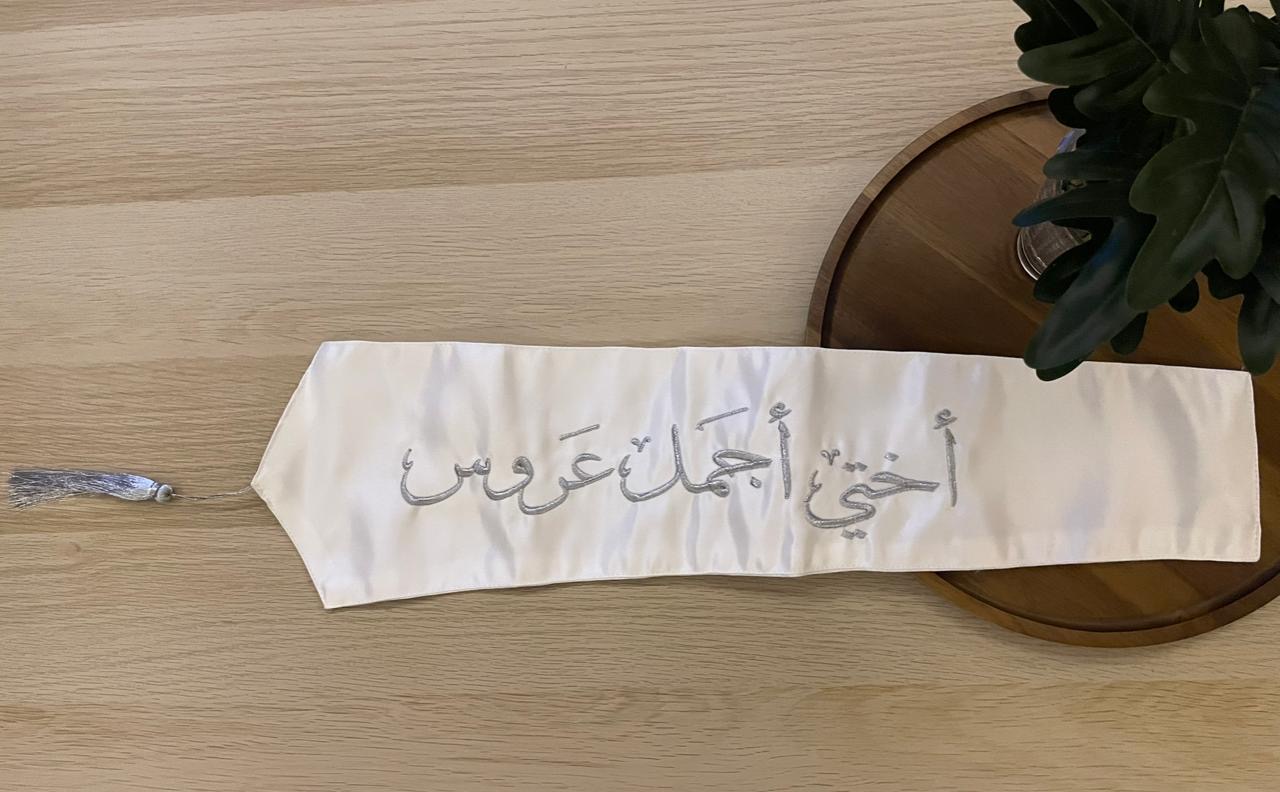 أختي أجمَل عَروس